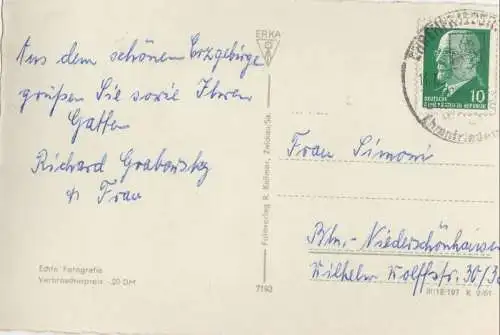 Aus dem schönen Erzgebirge
grüßen Sie sowie Ihren
Gatten
Richard Grabowsky
u Frau
Echte Fotografie
Verbraucherpreis -,20 DM
ERKA
Fotoverlag R. Kallmer, Zwickau/Sa.
7193
10
DEUTSCHE
DEMOKRATISCHE REPUBLIK
Frau Simoni
Bln.-Niederschönhausen
Wilhelm Wolffstr. 30/3
III/18/197 K 9/61